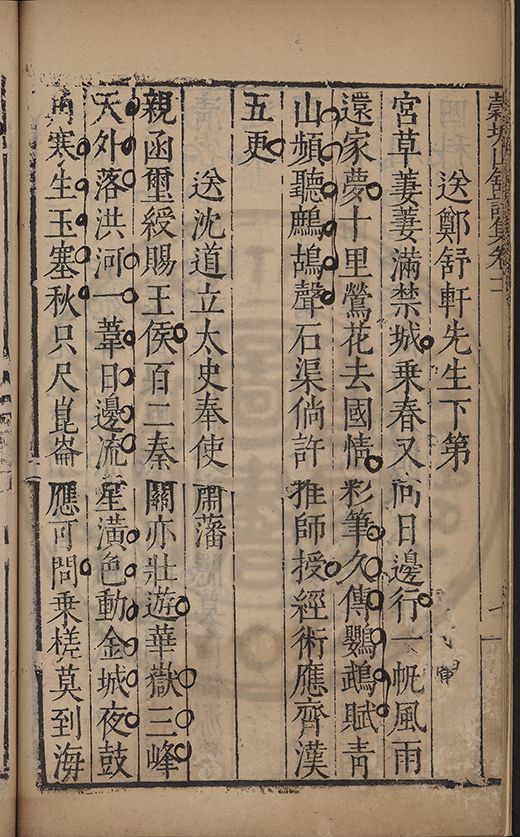 穀城山館詩集卷十二
送鄭舒軒先生下第
宮草萋萋滿禁城乘春又向日邊行一帆風雨
還家夢十里鶯花去國情彩筆久傳鸚鵡賦青
山頻聽鷓鴣聲石渠倘許推師授經術應齊漢
五更
送沈道立太史奉使肅藩
親函璽綬賜王侯百二秦關亦壯遊華嶽三峰
天外落洪河一葦日邊流星潢色動金城夜鼓
角寒生玉塞秋只尺崑崙應可問乘槎莫到海